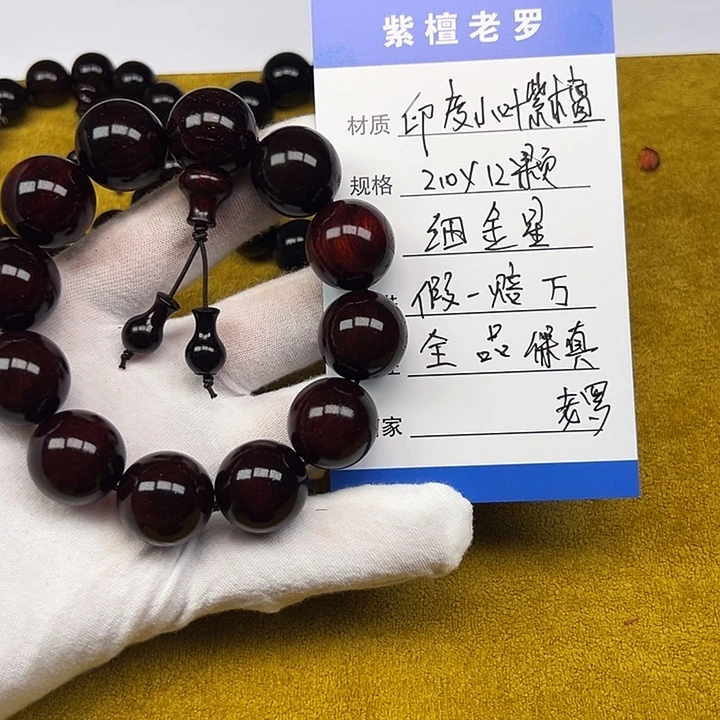 紫檀老罗
材质 印度小叶紫檀
规格 210X12颗
细金星
假一赔万
全品保真
老罗
家